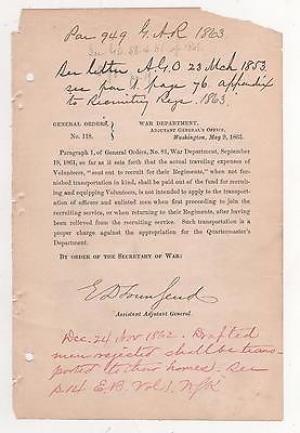 Par 949 G.A.R 1863
See letter A.G.O 23 Mch 1853
see par 1 page 76 appendix
to Recruiting Regs. 1863.
GENERAL ORDERS,
No. 118.
WAR DEPARTMENT,
ADJUTANT GENERAL'S OFFICE,
Washington, May 9, 1863.
Paragraph 1, of General Orders, No. 81, War Department, September
19, 1861, so far as it sets forth that the actual traveling expenses of
Volunteers, "sent out to recruit for their Regiments," when not fur-
nished transportation in kind, shall be paid out of the fund for recruit-
ing and equipping Volunteers, is not intended to apply to the transporta-
tion of officers and enlisted men when first proceeding to join the
recruiting service, or when returning to their Regiments, after having
been relieved from the recruiting service. Such transportation is a
proper charge against the appropriation for the Quartermaster's
Department.
BY ORDER OF THE SECRETARY OF WAR:
E D Townsend
Assistant Adjutant General.
Dec. 24 Nov 1862. Drafted
men rejected shall be trans-
ported to their homes. See
p 14 E.B. Vol 1.